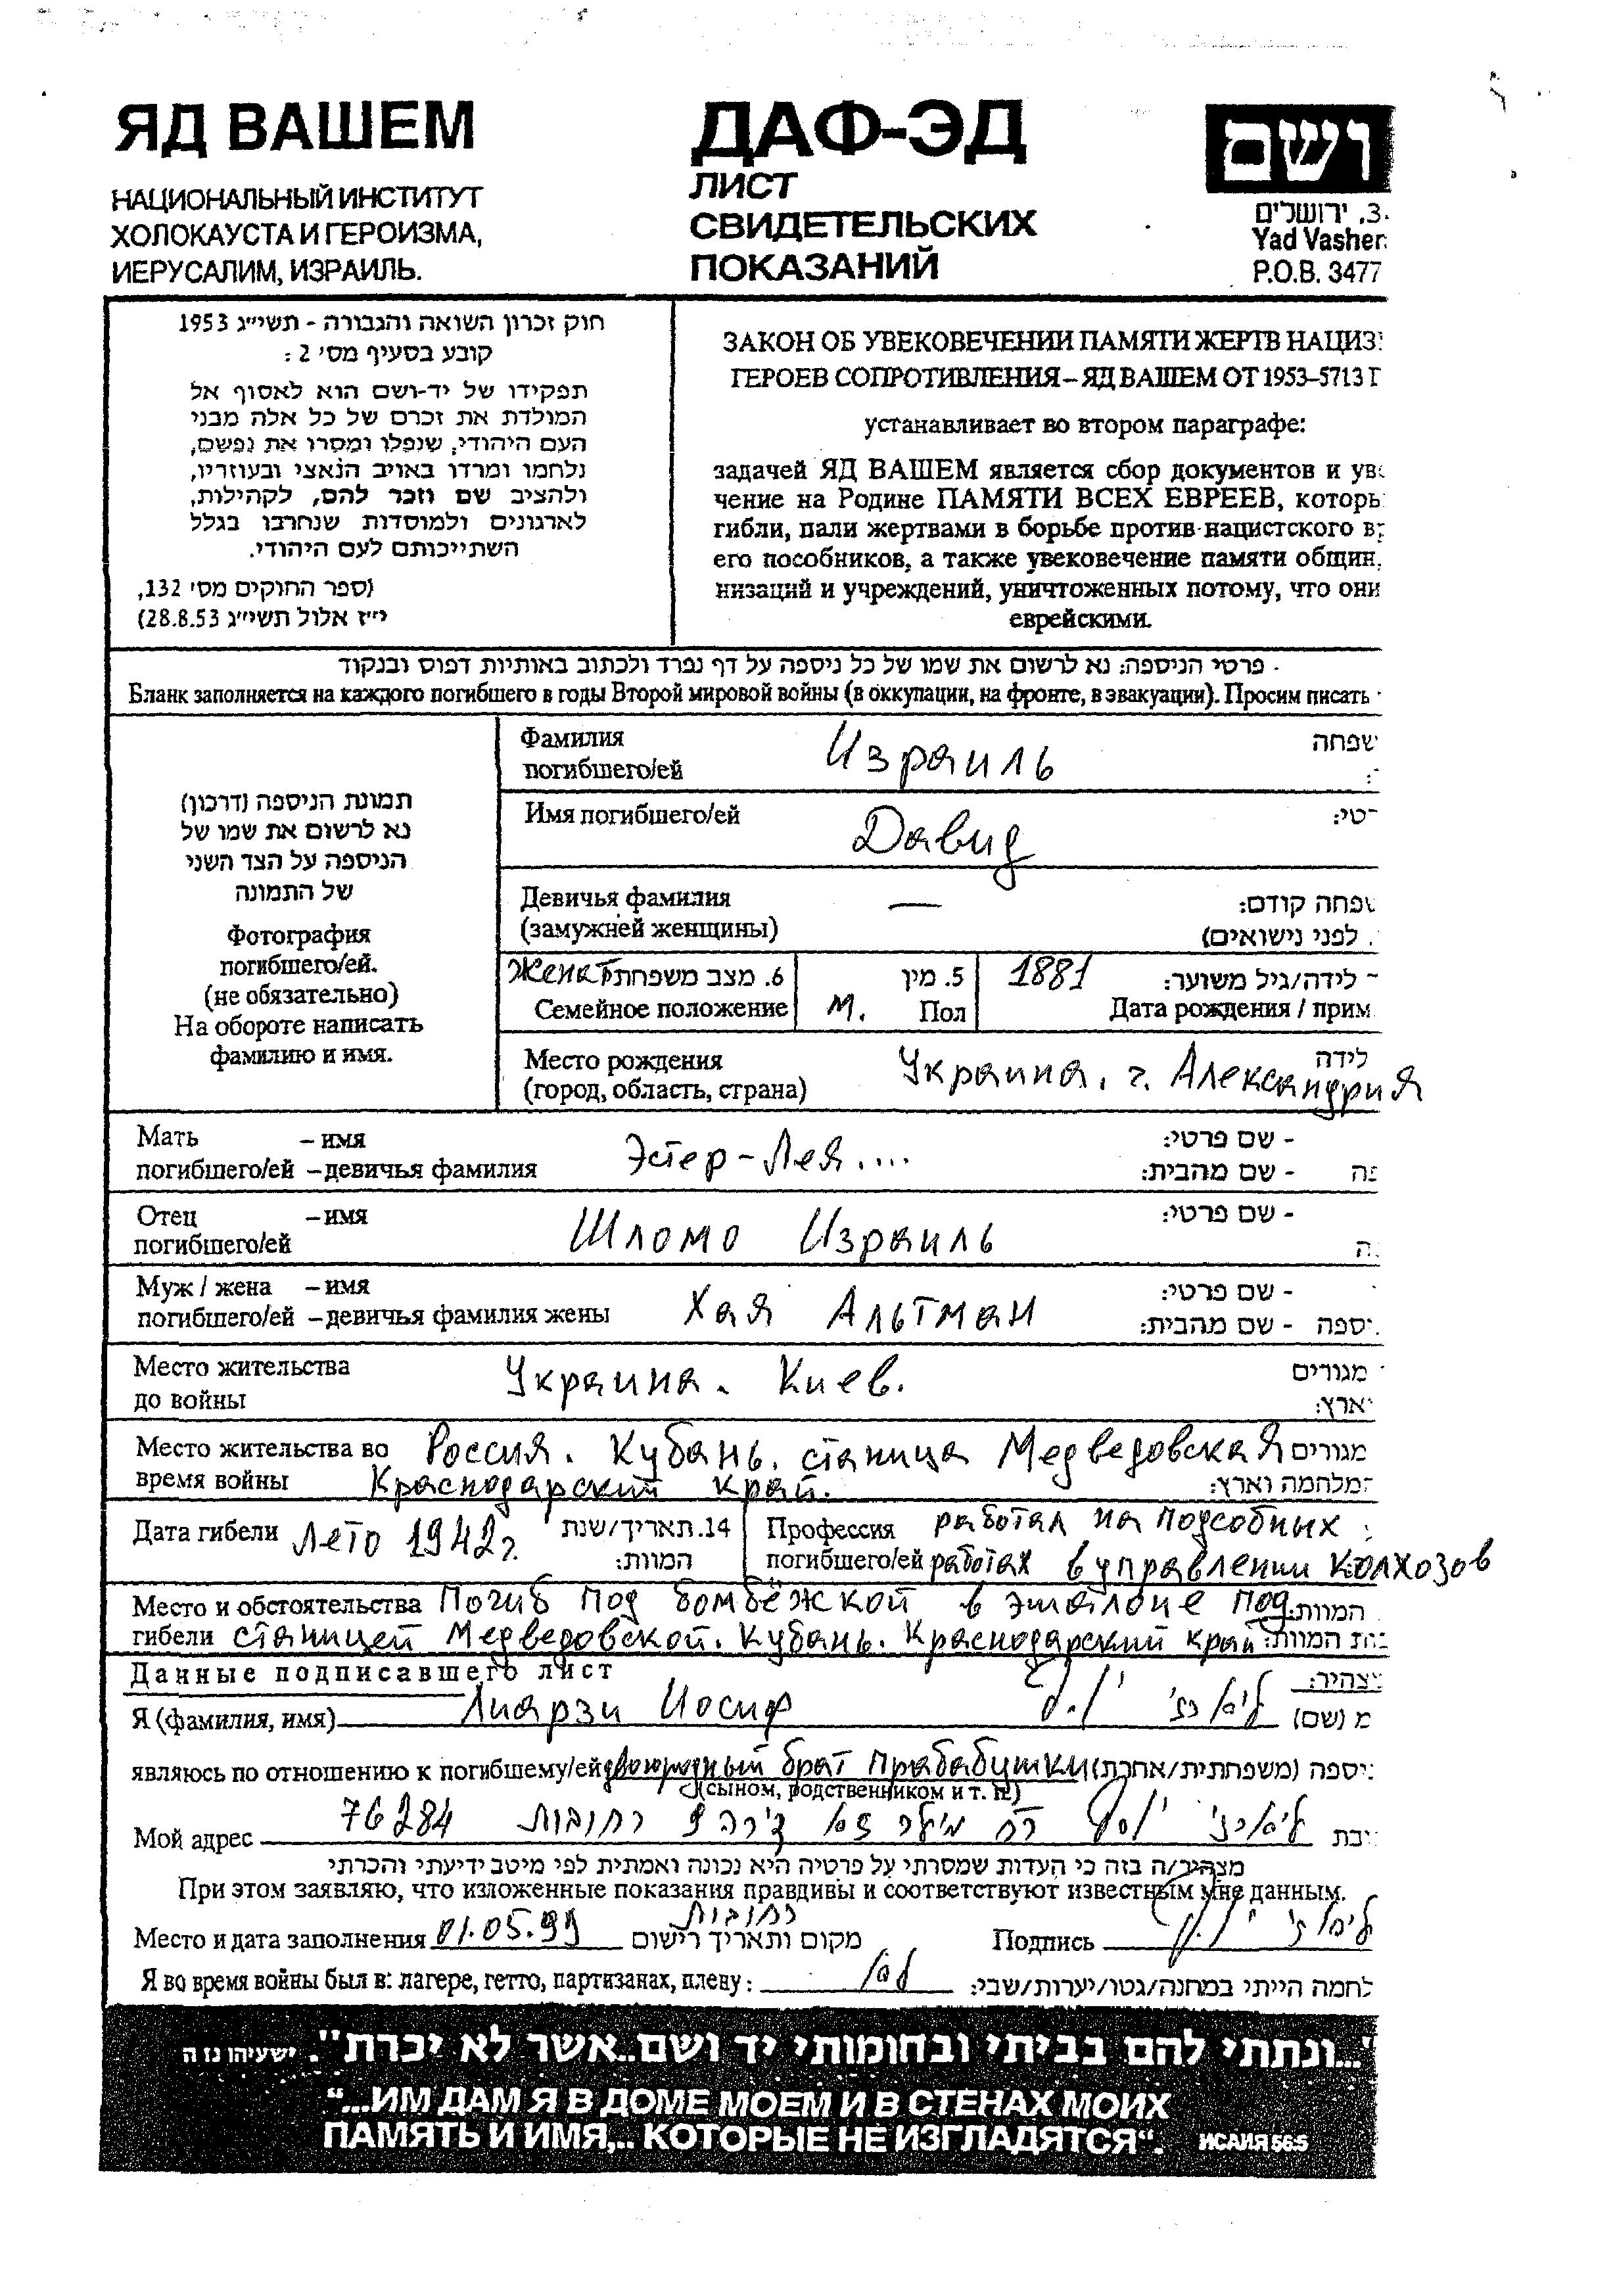 ЯД ВАШЕМ
НАЦИОНАЛЬНЫЙ ИНСТИТУТ
ХОЛОКАУСТА И ГЕРОИЗМА,
ИЕРУСАЛИМ, ИЗРАИЛЬ.
ДАФ-ЭД
ЛИСТ
СВИДЕТЕЛЬСКИХ
ПОКАЗАНИЙ
ושם
3, ירושלים
Yad Vashem
P.O.B. 3477
חוק זכרון השואה והגבורה - תשי"ג 1953
קובע בסעיף מס' 2:
תפקידו של יד-ושם הוא לאסוף אל
המולדת את זכרם של כל אלה מבני
העם היהודי, שנפלו ומסרו את נפשם,
נלחמו ומרדו באויב הנאצי ובעוזריו,
ולהציב שם וזכר להם, לקהילות,
לארגונים ולמוסדות שנחרבו בגלל
השתייכותם לעם היהודי.
(ספר החוקים מס' 132,
י"ז אלול תשי"ג 28.8.53)
ЗАКОН ОБ УВЕКОВЕЧЕНИИ ПАМЯТИ ЖЕРТВ НАЦИЗ
ГЕРОЕВ СОПРОТИВЛЕНИЯ – ЯД ВАШЕМ ОТ 1953–5713 Г
устанавливает во втором параграфе:
задачей ЯД ВАШЕМ является сбор документов и уве
чение на Родине ПАМЯТИ ВСЕХ ЕВРЕЕВ, которы
гибли, пали жертвами в борьбе против нацистского вр
его пособников, а также увековечение памяти общин,
низаций и учреждений, уничтоженных потому, что они
еврейскими.
פרטי הניספה: נא לרשום את שמו של כל ניספה על דף נפרד ולכתוב באותיות דפוס ובנקוד
Бланк заполняется на каждого погибшего в годы Второй мировой войны (в оккупации, на фронте, в эвакуации). Просим писать
תמונת הניספה (דרכון)
נא לרשום את שמו של
הניספה על הצד השני
של התמונה
Фотография
погибшего/ей.
(не обязательно)
На обороте написать
фамилию и имя.
Фамилия
погибшего/ей Израиль שפחה
Имя погибшего/ей Давид רטי:
Девичья фамилия — שפחה קודם:
(замужней женщины) לפני נישואים)
женат 6. מצב משפחתי 5. מין 1881 לידה/גיל משוער:
Семейное положение М. Пол Дата рождения / прим
Место рождения Украина. г. Александрия לידה
(город, область, страна)
Мать – имя Эстер-Лея.... - שם פרטי:
погибшего/ей – девичья фамилия - שם מהבית:
Отец – имя Шломо Израиль - שם פרטי:
погибшего/ей
Муж / жена – имя Хая Альтман - שם פרטי:
погибшего/ей – девичья фамилия жены יספה - שם מהבית:
Место жительства Украина. Киев. מגורים
до войны ארץ:
Место жительства во Россия. Кубань. станица Медведовская מגורים
время войны Краснодарский край. מלחמה וארץ:
Дата гибели Лето 1942г. 14. תאריך/שנת המוות:
Профессия работал на подсобных
погибшего/ей работах в управлении колхозов
Место и обстоятельства Погиб под бомбёжкой в эшалоне под המוות:
гибели станицей Медведовской. Кубань. Краснодарский край המוות:
Данные подписавшего лист צהיר:
Я (фамилия, имя) Лиарзи Иосиф ליארזי יוסף מ (שם)
являюсь по отношению к погибшему/ей двоюродный брат прабабушки יספה (משפחתית/אחרת)
(сыном, родственником и т. п.)
Мой адрес ליארזי יוסף רח מילר דירה 9 רחובות 76284
מצהיר/ה בזה כי העדות שמסרתי על פרטיה היא נכונה ואמתית לפי מיטב ידיעתי והכרתי
При этом заявляю, что изложенные показания правдивы и соответствуют известным мне данным.
רחובות
Место и дата заполнения 01.05.99 מקום ותאריך רישום Подпись ליארזי
Я во время войны был в: лагере, гетто, партизанах, плену: לא לחמה הייתי במחנה/גטו/יערות/שבי:
"...ונתתי להם בביתי ובחומותי יד ושם..אשר לא יכרת". ישעיהו נו ה
“...ИМ ДАМ Я В ДОМЕ МОЕМ И В СТЕНАХ МОИХ
ПАМЯТЬ И ИМЯ,.. КОТОРЫЕ НЕ ИЗГЛАДЯТСЯ“. ИСАИЯ 56:5